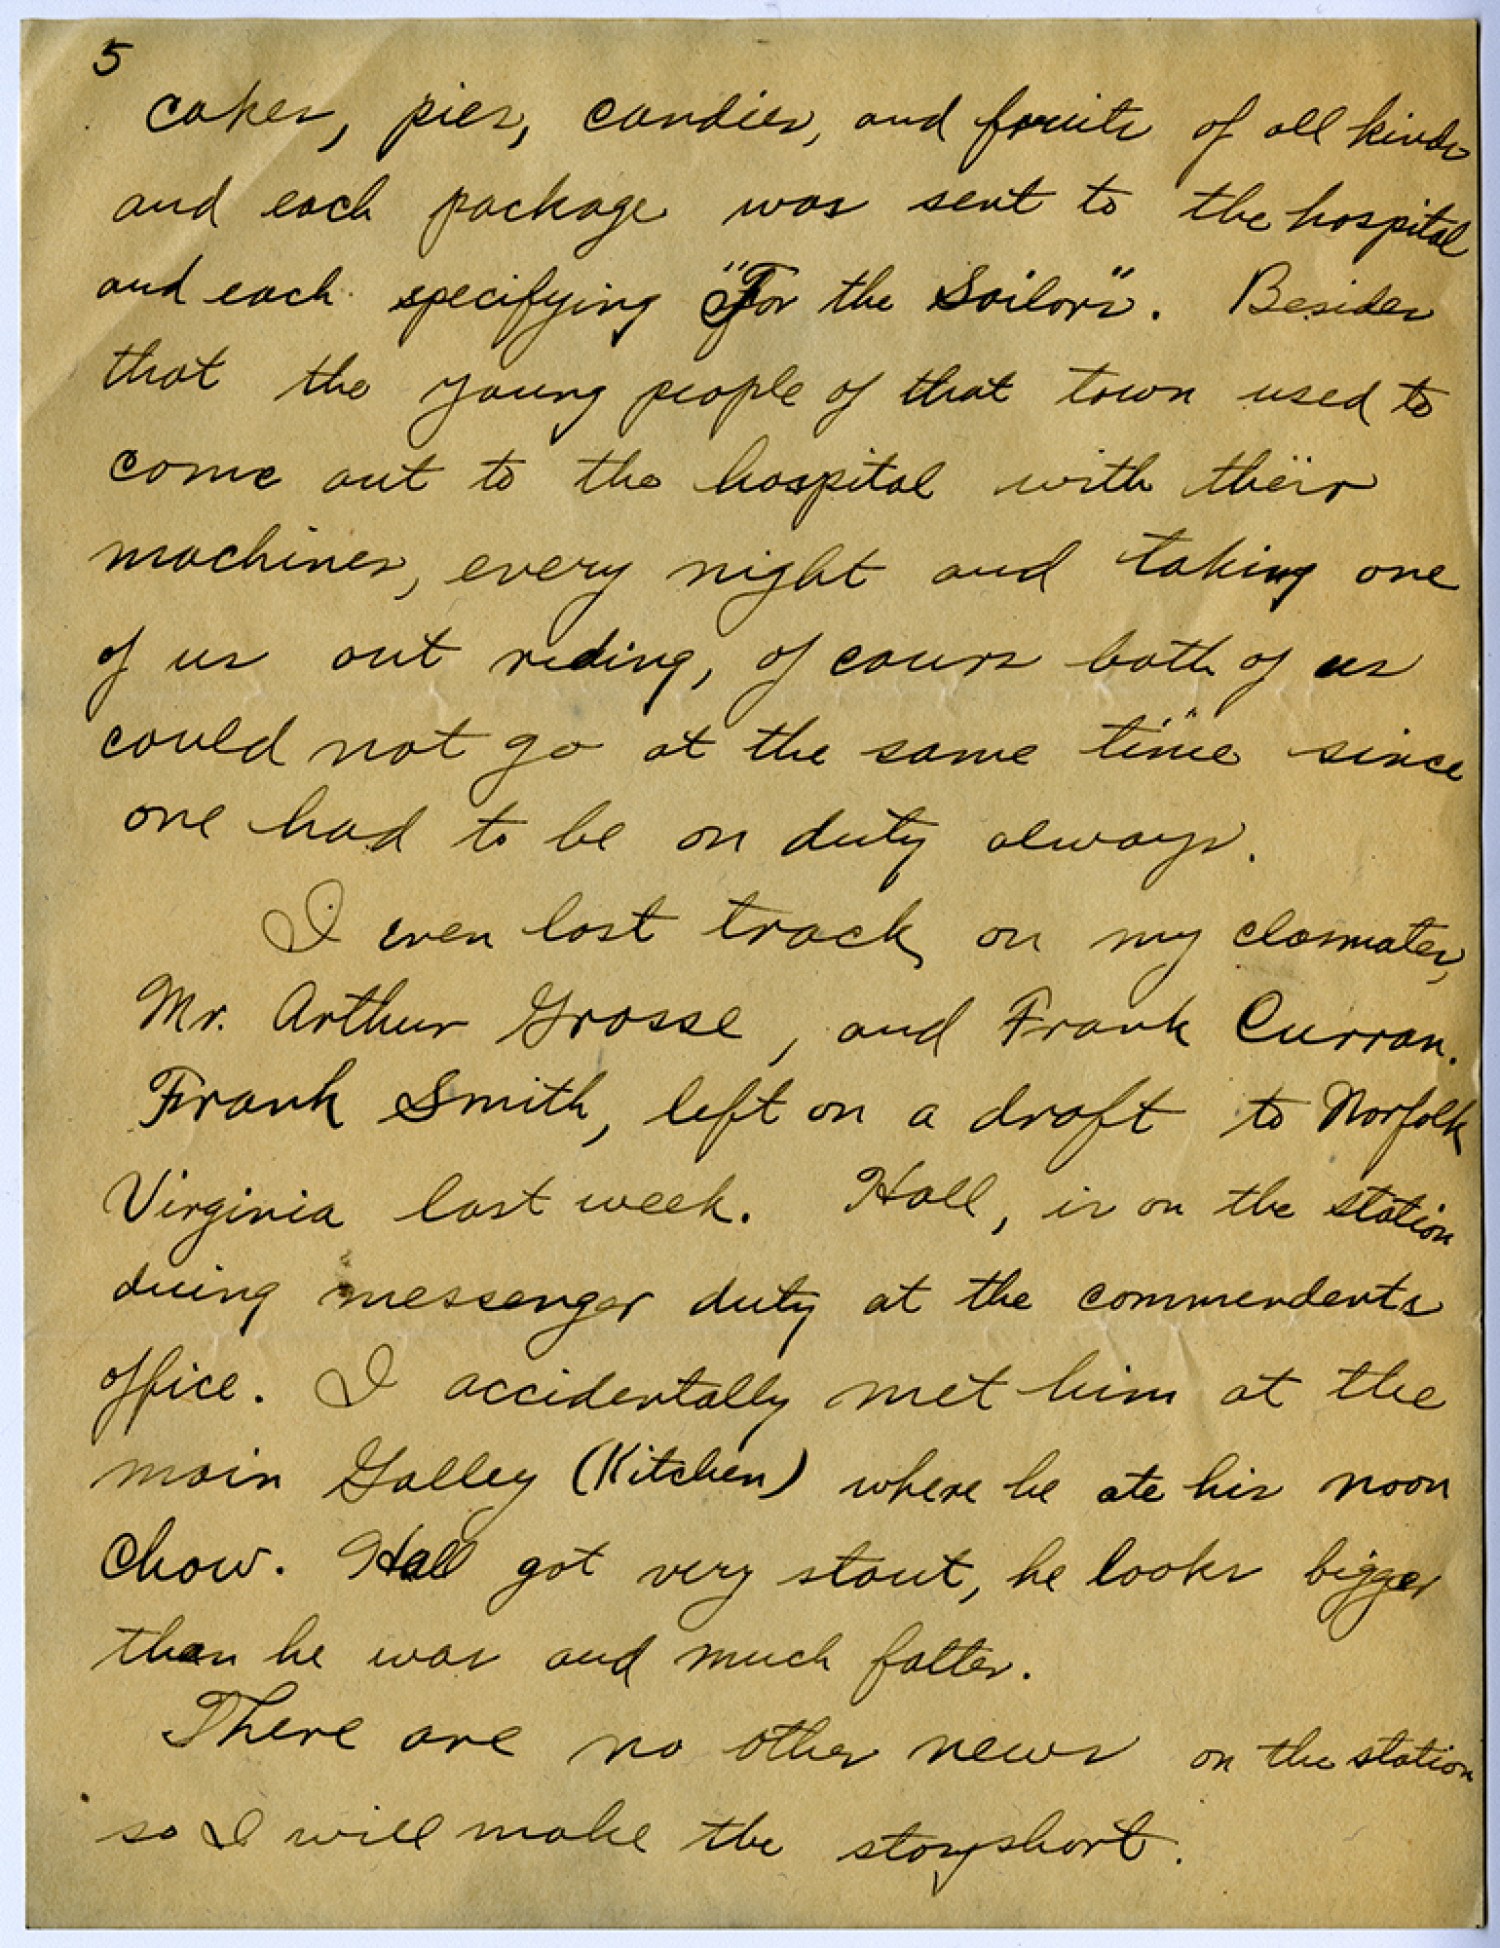 5
cakes, pies, candies, and fruits of all kinds
and each package was sent to the hospital
and each specifying "For the Sailors". Besides
that the young people of that town used to
come out to the hospital with their
machines, every night and taking one
of us out riding, of cours both of us
could not go at the same time since
one had to be on duty always.
I even lost track on my classmates,
Mr. Arthur Grosse, and Frank Curran.
Frank Smith, left on a draft to Norfolk
Virginia last week. Hall, is on the station
duing messenger duty at the commendents
office. I accidentally met him at the
main Galley (Kitchen) where he ate his noon
Chow. Hall got very stout, he looks bigger
than he was and much fatter.
There are no other news on the station
so I will make the story short.